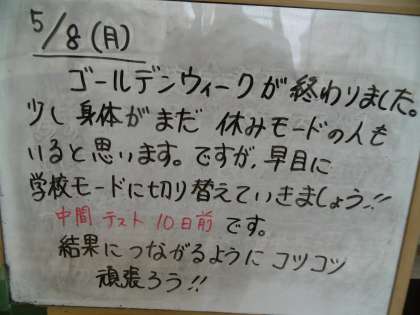 5/8(月)
ゴールデンウィークが終わりました。
少し身体がまだ休みモードの人も
いると思います。ですが、早目に
学校モードに切り替えていきましょう!!
中間テスト10日前です。
結果につながるようにコツコツ
頑張ろう!!